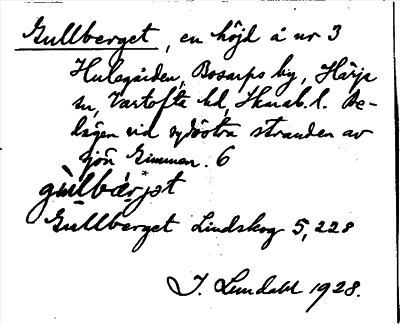 Gullberget, en höjd å nr 3
Hulegården, Bosarps by, Härja
sn, Vartofta hd, Skarab. l. Be-
lägen vid sydöstra stranden av
sjön Gimmen. 6
gu̇lbærjət
Gullberget Lindskog 5,228
J. Lundahl 1928.